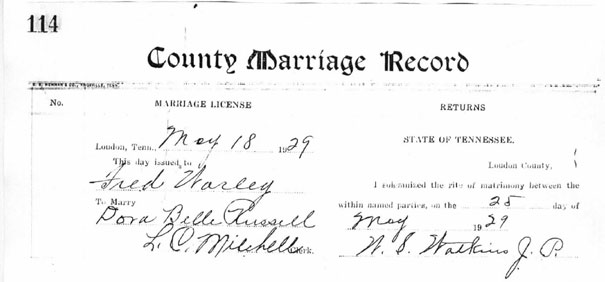 114
County Marriage Record
No.
MARRIAGE LICENSE
RETURNS
Loudon, Tenn., May 18 1929
This day issued to
Fred Worley
To Marry
Dora Belle Russell
L. C. Mitchell Clerk.
STATE OF TENNESSEE,
Loudon County,
I solemnized the rite of matrimony between the
within named parties, on the 25 day of
May 1929
W. S. Watkins J. P.